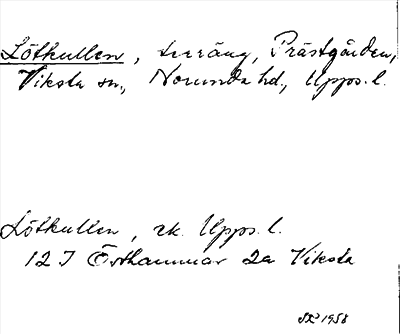 Lötkullen, terräng, Prästgården,
Viksta sn, Norunda hd., Upps. l.
Lötkullen, ek. Upps. l.
12 I Östhammar 2a Viksta
1958